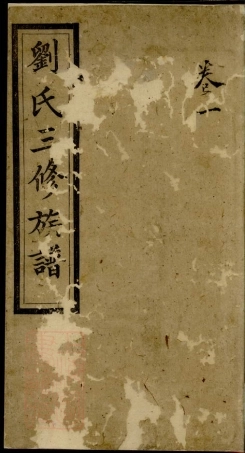 劉氏三修族譜
卷一